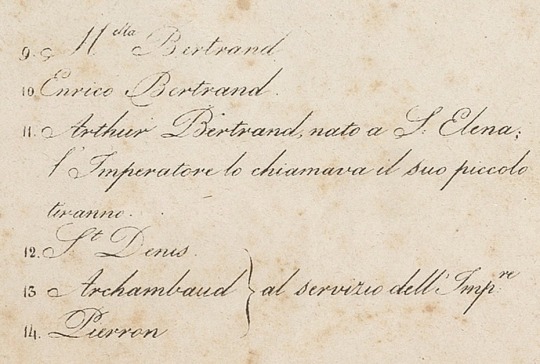 9. Mlla Bertrand
10. Enrico Bertrand.
11. Arthur Bertrand, nato a S. Elena;
l'Imperatore lo chiamava il suo piccolo
tiranno.
12. St Denis.
13 Archambaud } al servizio dell'Impre
14. Pierron